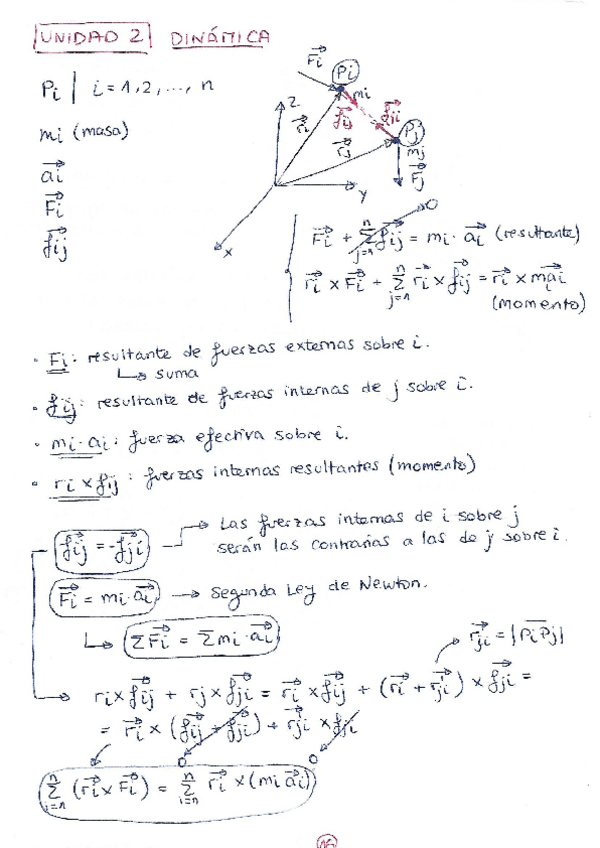 UNIDAD 2 DINÁMICA
Pi | i = 1, 2, ..., n
mi (masa)
ai
Fi
fij
Fi Pi mi
z ri fij fji Pj
rj mj
y Fj
x
Fi + Σ fij = mi · ai (resultante) 0
j=1 n
ri × Fi + Σ ri × fij = ri × mai
j=1 n (momento)
· Fi: resultante de fuerzas externas sobre i.
↳ suma
· fij: resultante de fuerzas internas de j sobre i.
· mi·ai: fuerza efectiva sobre i.
· ri × fij: fuerzas internas resultantes (momento)
fij = -fji → Las fuerzas internas de i sobre j
serán las contrarias a las de j sobre i.
Fi = mi·ai → Segunda Ley de Newton.
↳ ΣFi = Σmi·ai
rji = |PiPj|
ri × fij + rj × fji = ri × fij + (ri + rji) × fji =
= ri × (fij + fji) + rji × fji
0 0
Σ (ri × Fi) = Σ ri × (mi ai)
i=1 n i=1 n